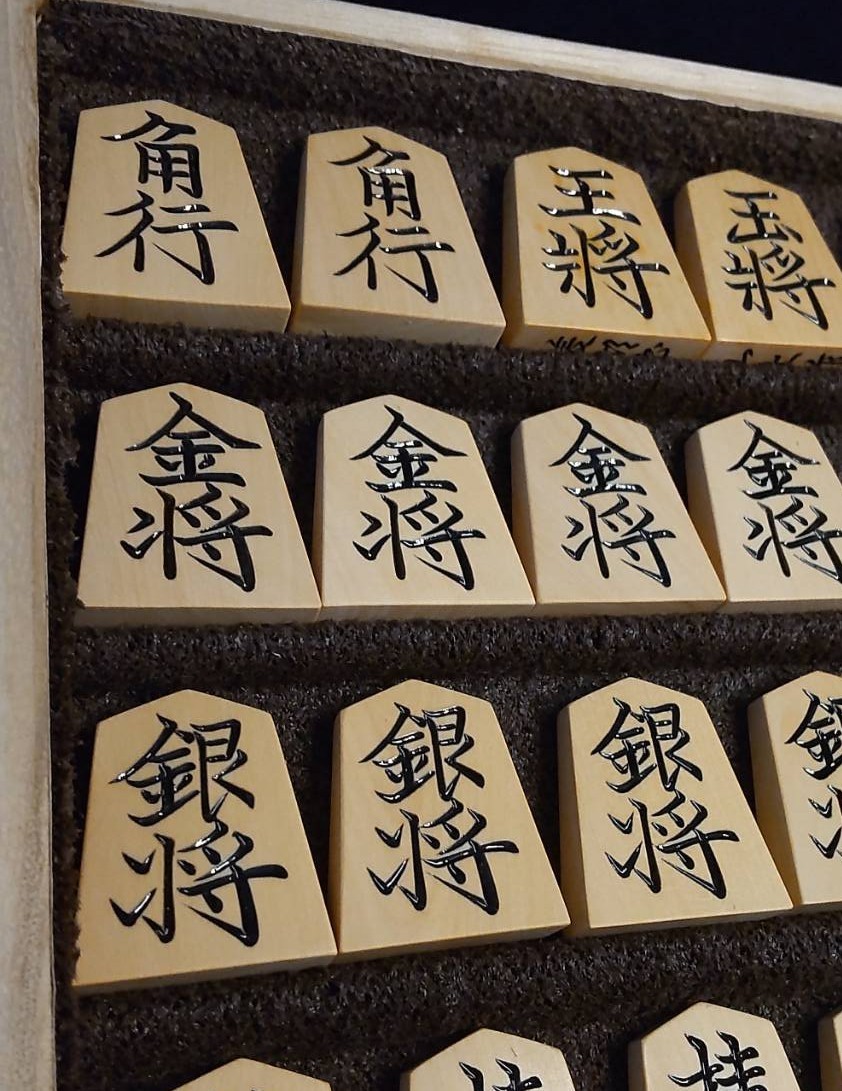 角行
角行
王将
玉将
金将
金将
金将
金将
銀将
銀将
銀将